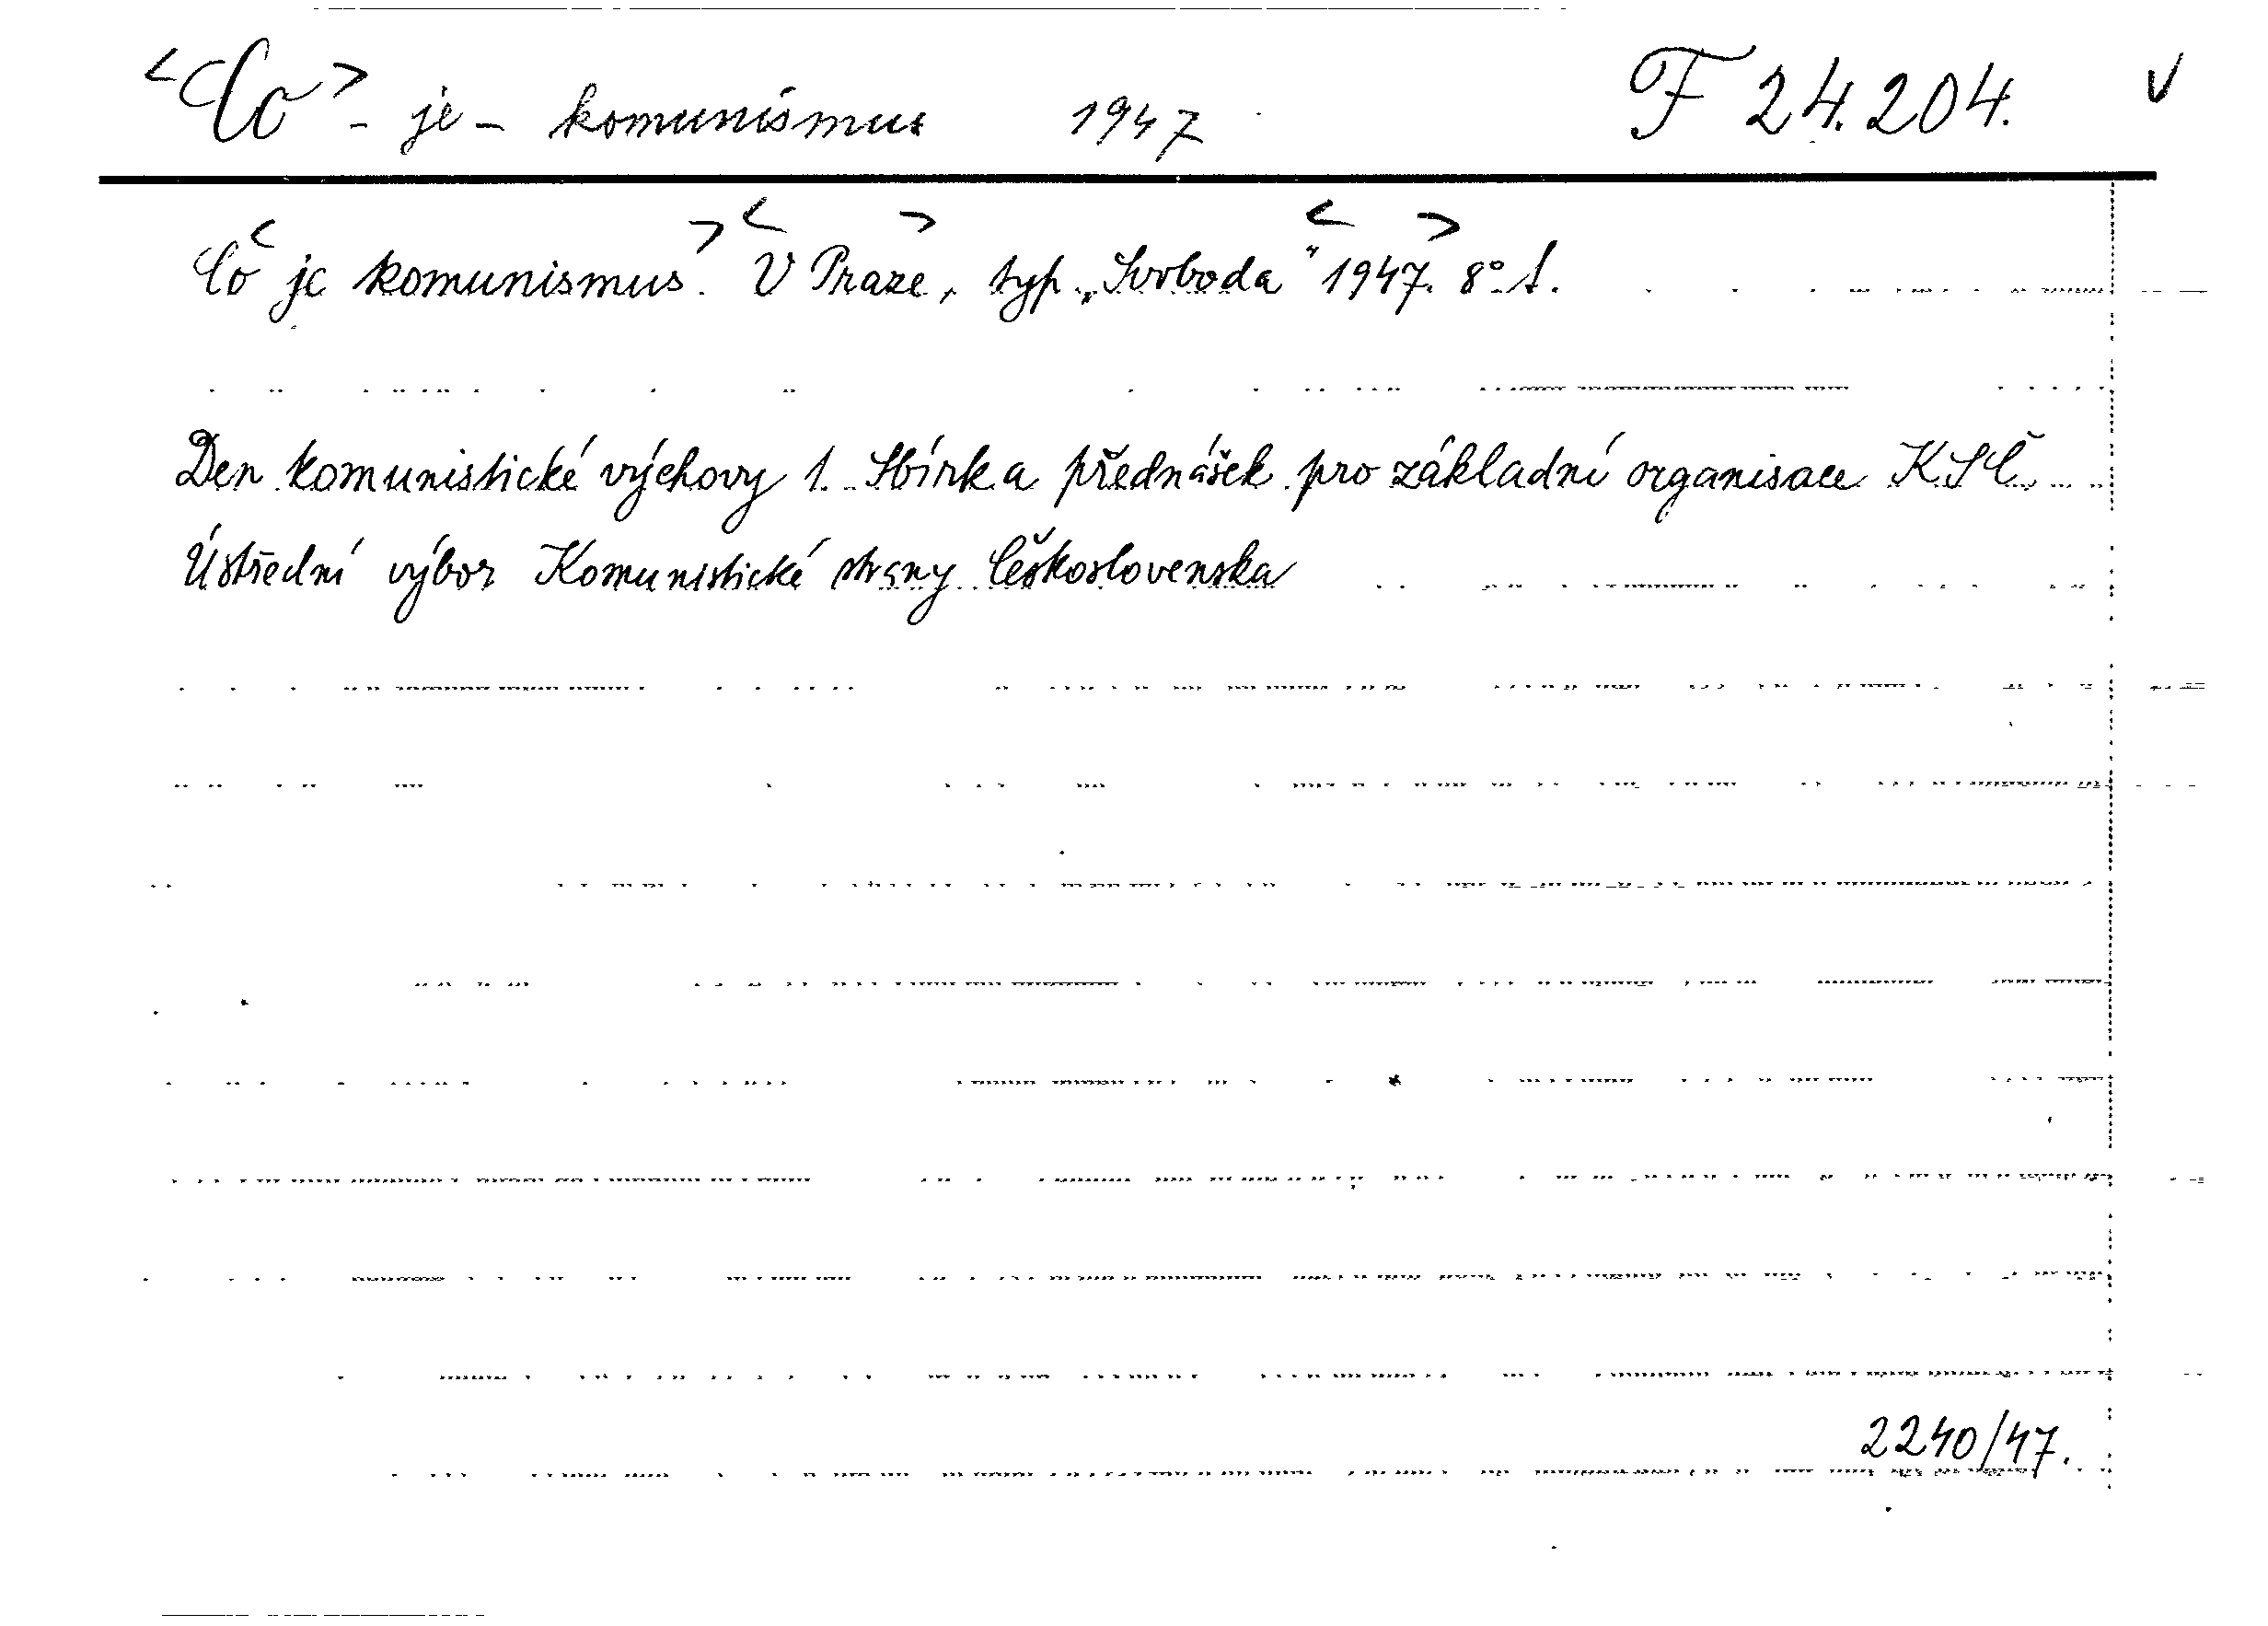 <Co> - je - komunismus 1947 F 24.204. v
Co je komunismus. V Praze, typ. „Svoboda" 1947. 8° I.
Den komunistické výchovy 1. Sbírka přednášek pro základní organisace KSČ.
Ústřední výbor Komunistické strany Československa
2240/47.